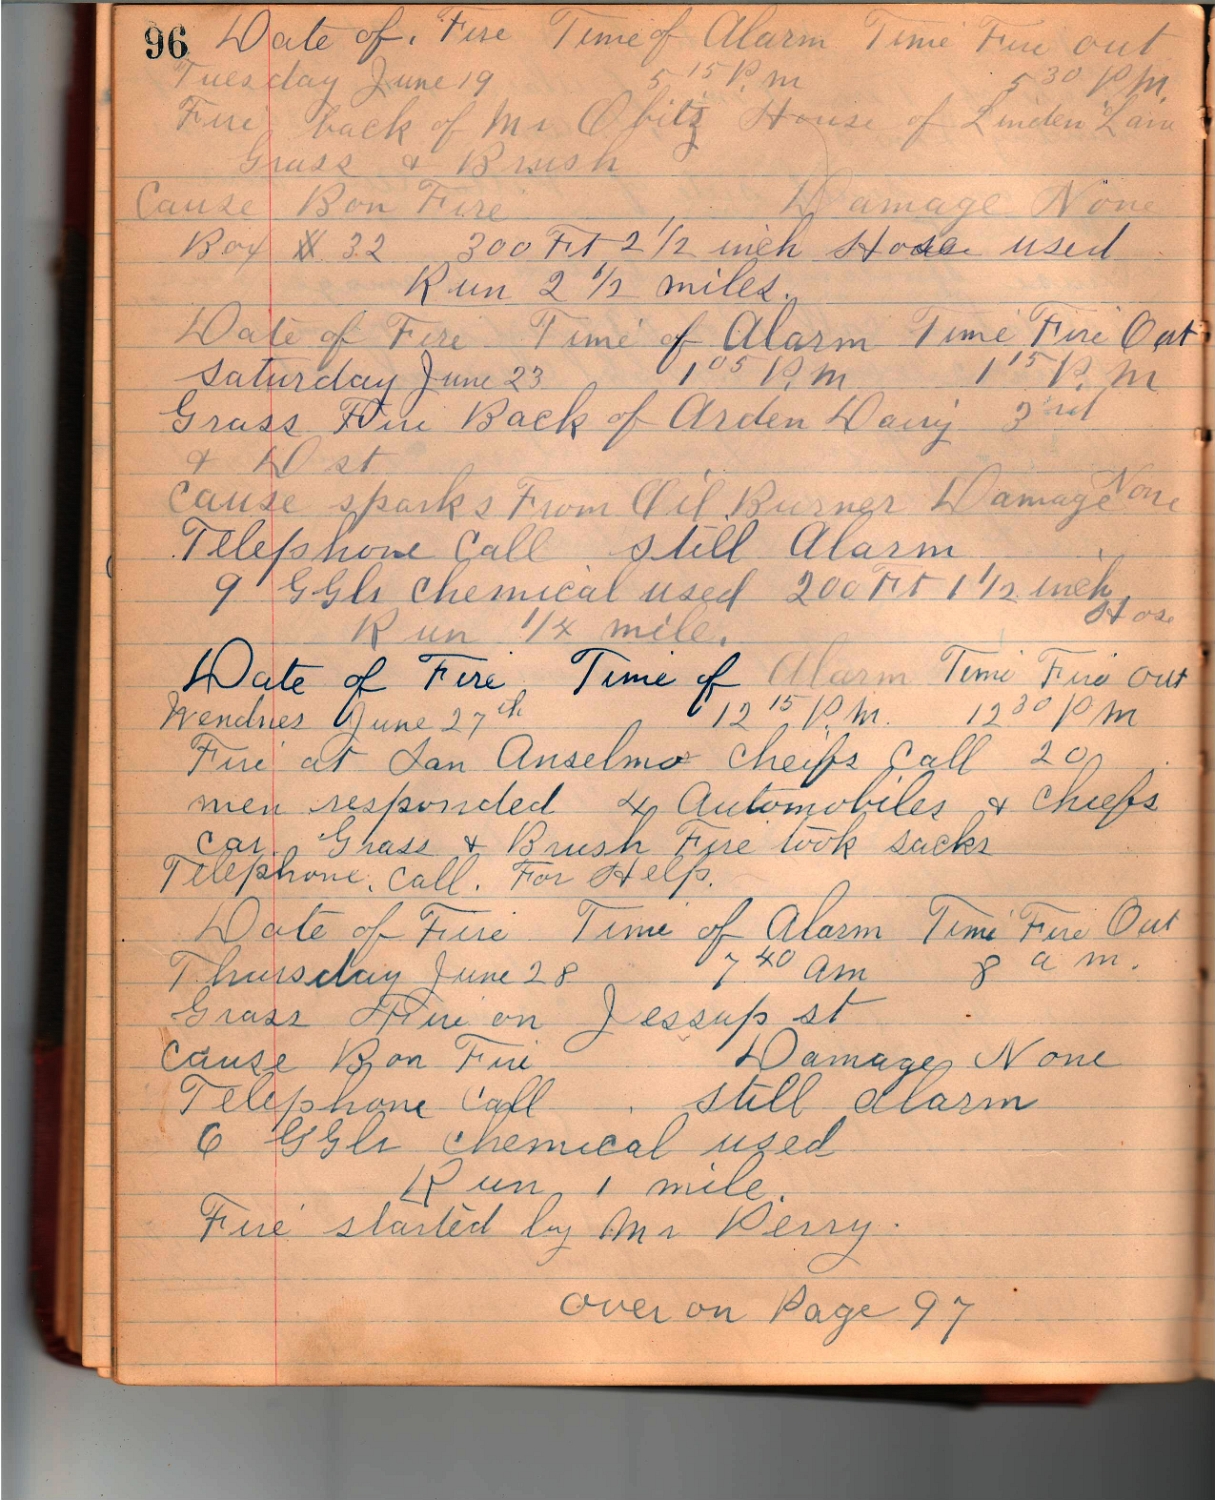 96 Date of. Fire Time of Alarm Time Fire out
Tuesday June 19 5 15 P.m 5 30 P M.
Fire back of Mr Obitz House of Linden Lane
Grass & Brush
Cause Bon Fire Damage None
Box 32 300 Ft 2 1/2 inch Hose used
Run 2 1/2 miles.
Date of Fire Time of Alarm Time Fire Out
Saturday June 23 1 05 P.M 1 15 P. M
Grass Fire Back of Arden Dairy 3rd
& D st
Cause sparks From Oil Burner Damage None
Telephone Call still Alarm
9 GGls chemical used 200 Ft 1 1/2 inch
Hose
Run 1/4 mile.
Date of Fire Time of Alarm Time Fire out
Wendnes June 27th 12 15 P.M. 12 30 P M
Fire at San Anselmo Cheifs Call 20
men responded 4 Automobiles & Cheifs
car. Grass & Brush Fire took sacks
Telephone. Call. For Help.
Date of Fire Time of Alarm Time Fire Out
Thursday June 28 7 40 am 8 a m.
Grass Fire on Jessup st
Cause Bon Fire Damage None
Telephone Call . still alarm
6 GGls chemical used
Run 1 mile.
Fire started by Mr Perry.
over on Page 97